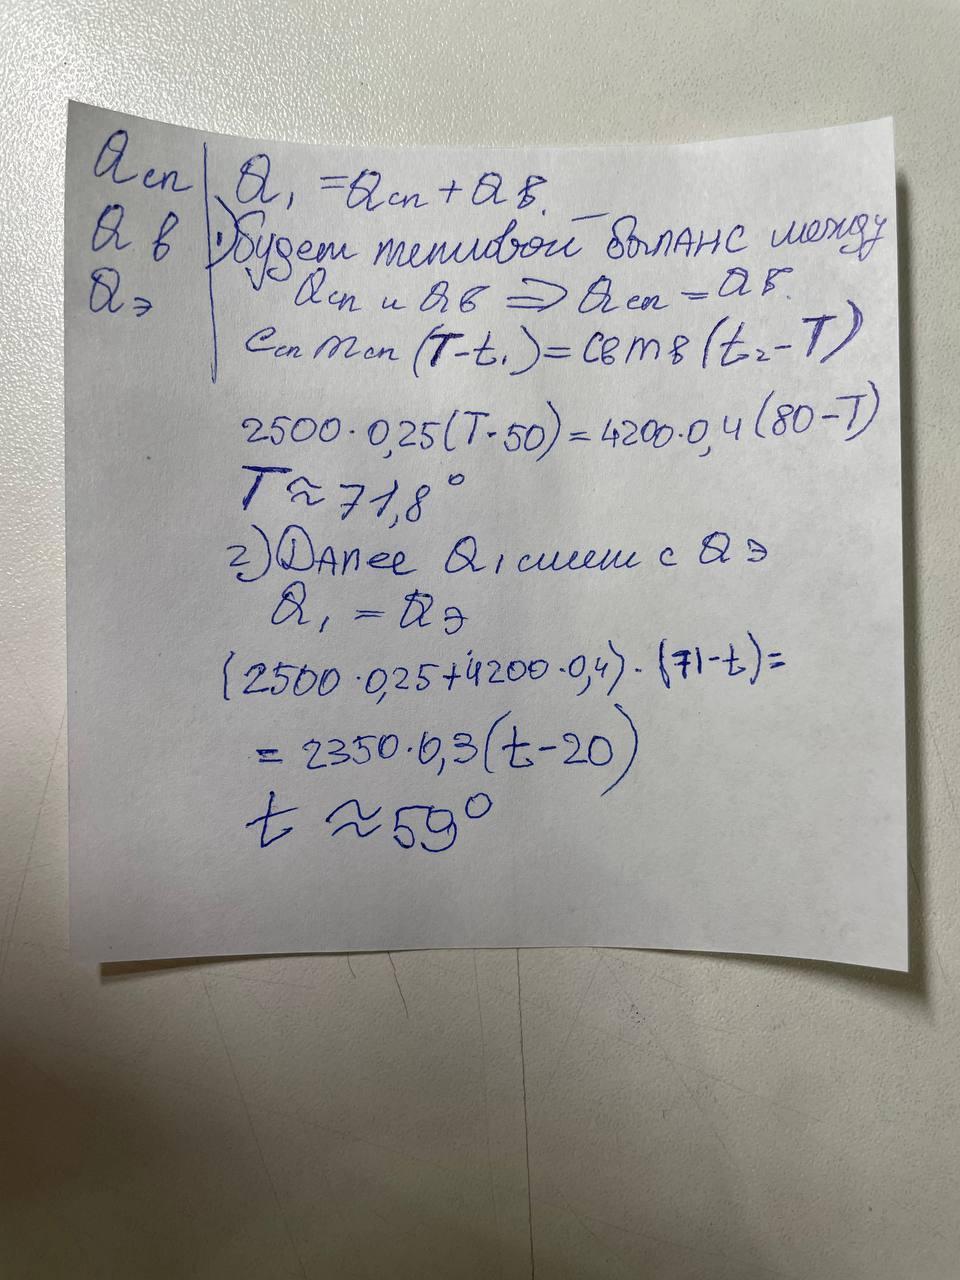 Qсп
Qв
Qэ
Q₁ = Qсп + Qв.
1) будет тепловой баланс между
Qсп и Qв ⇒ Qсп = Qв.
Cсп mсп (T - t₁) = Cв mв (t₂ - T)
2500 · 0,25 (T - 50) = 4200 · 0,4 (80 - T)
T ≈ 71,8°
2) Далее Q₁ смеш с Qэ
Q₁ = Qэ
(2500 · 0,25 + 4200 · 0,4) · (71 - t) =
= 2350 · 0,3 (t - 20)
t ≈ 59°